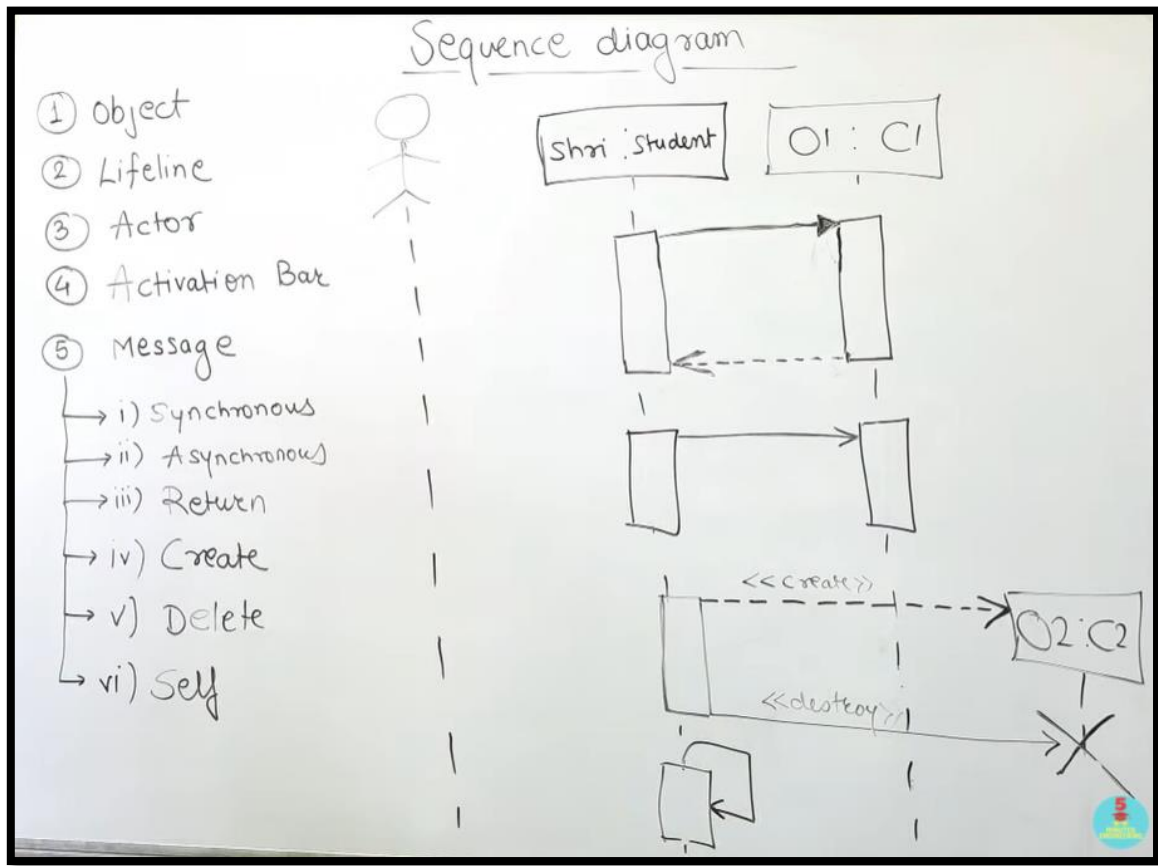 Sequence diagram
① Object
② Lifeline
③ Actor
④ Activation Bar
⑤ Message
i) Synchronous
ii) Asynchronous
iii) Return
iv) Create
v) Delete
vi) Self
Shri : Student
O1 : C1
<<create>>
O2:C2
<<destroy>>
5
MINUTES
ENGINEERING